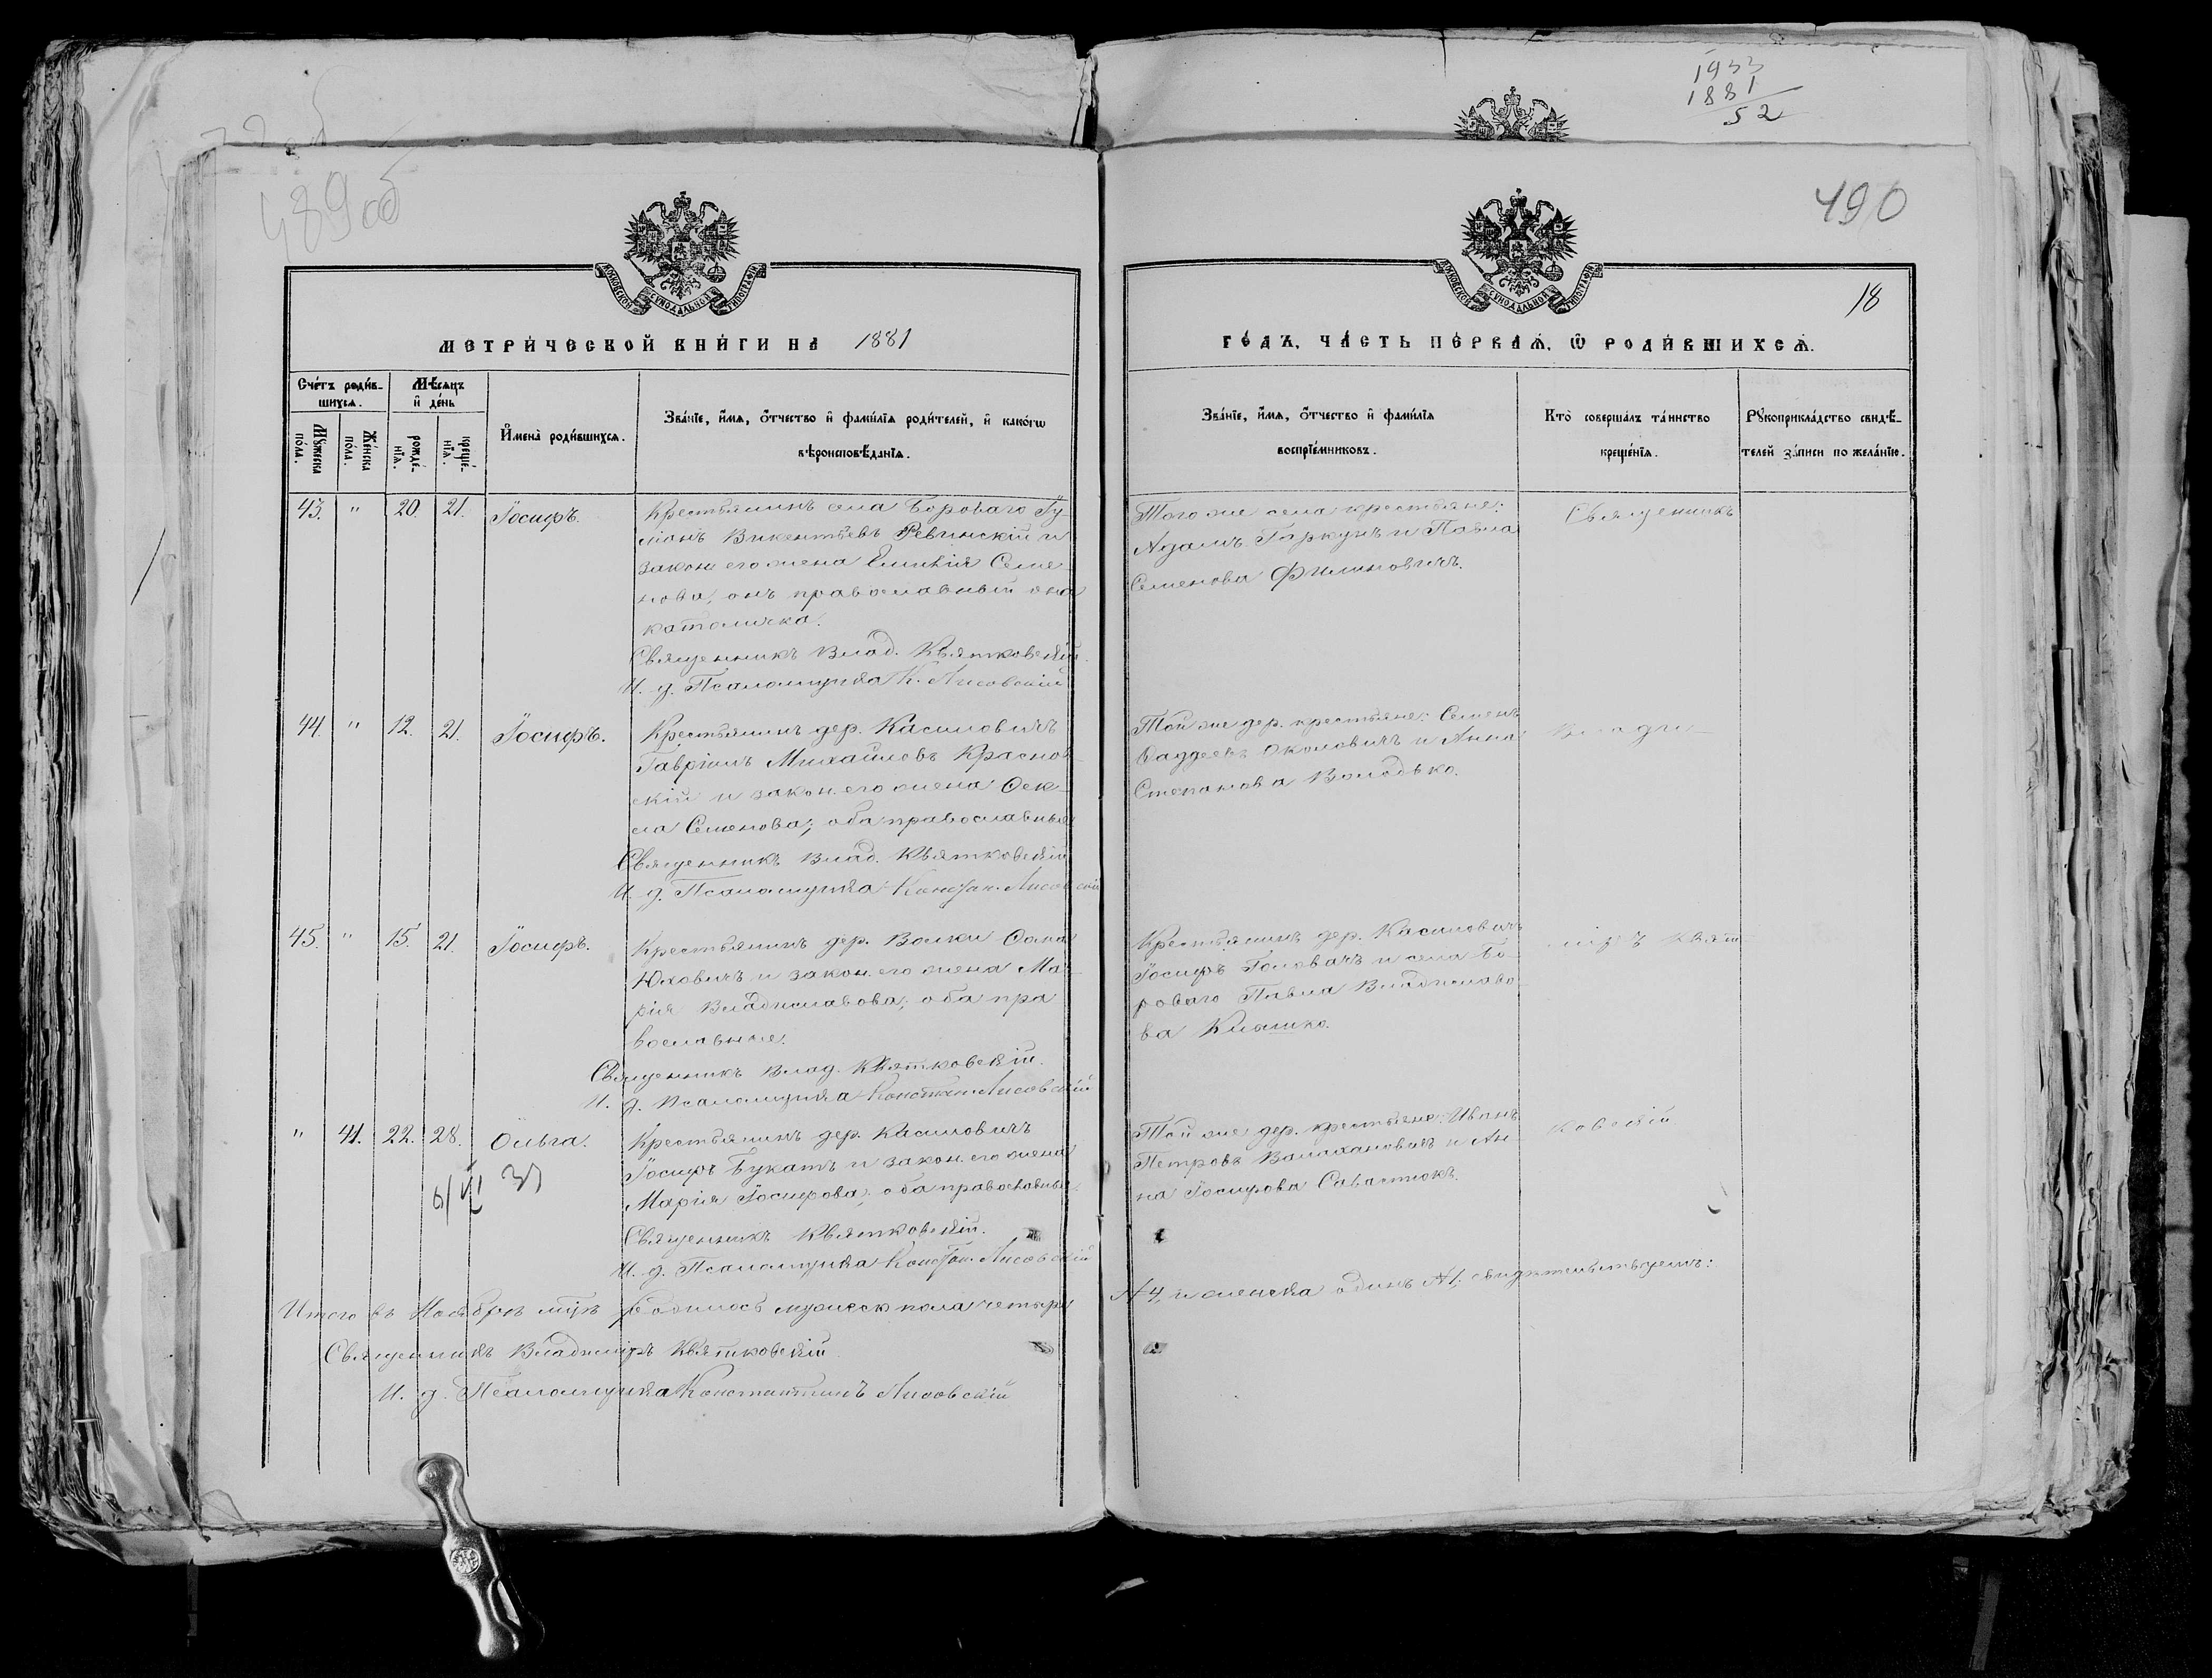 1933
1881
52
489об
490
18
МОСКОВСКОЙ СѴНОДАЛЬНОЙ ТИПОГРАФІИ
МОСКОВСКОЙ СѴНОДАЛЬНОЙ ТИПОГРАФІИ
МЕТРИ́ЧЕСКОЙ КНИ́ГИ НА 1881
ГО́ДЪ, ЧА́СТЬ ПЕ́РВАЯ, Ѿ РОДИ́ВШИХСЯ.
Сче́тъ роди́в-
шихся.
Мѣ́сяцъ
и҆ де́нь
Мꙋ́жеска
по́ла.
Же́нска
по́ла.
рожде́-
нїя.
креще́-
нїя.
И҆мена̀ роди́вшихся.
Зва́нїе, и҆́мя, ѻ҆́тчество и҆ фами́лїя роди́телей, и҆ како́гѡ
вѣроисповѣ́данїя.
Зва́нїе, и҆́мя, ѻ҆́тчество и҆ фами́лїя
воспрїе́мниковъ.
Кто̀ соверша́лъ та́инство
креще́нїя.
Рꙋкоприкла́дство свидѣ́-
телей за́писи по жела́нїю.
43. " 20. 21. Іосифъ.
Крестьянинъ села Бороваго Ту-
ліанъ Викентьевъ Ревинскій и
закон. его жена Емилія Семе-
нова, онъ православный она
католичка.
Священникъ Влад. Квятковскій.
И. д. Псаломщика К. Лисовскій
Того же села крестьяне:
Адамъ Гаркунъ и Павла
Семенова Филиповичъ.
Священникъ
44. " 12. 21. Іосифъ.
Крестьянинъ дер. Касиловичъ
Гавріилъ Михайловъ Краснов-
скій и закон. его жена Ѳек-
ла Семенова; оба православные
Священникъ Влад. Квятковскій
И. д. Псаломщика Констан. Лисовскій
Той же дер. крестьяне: Семенъ
Ѳаддеевъ Околовичъ и Анна
Степанова Володько.
Влади-
45. " 15. 21. Іосифъ.
Крестьянинъ дер. Волки Ѳома
Юховичъ и закон. его жена Ма-
рія Владиславова; оба пра
вославные.
Священникъ Влад. Квятковскій.
И. д. Псаломщика Констан. Лисовскій
Крестьянинъ дер. Касиловичъ
Іосифъ Головачъ и села Бо-
роваго Павла Владиславо-
ва Клышко.
міръ Квят-
" 41. 22. 28. Ольга.
Крестьянинъ дер. Касиловичъ
Іосифъ Букатъ и закон. его жена
Марія Іосифова; оба православные
Священникъ Квятковскій.
И. д. Псаломщика Констан. Лисовскій
Той же дер. крестьяне: Иванъ
Петровъ Валахановичъ и Ан-
на Іосифова Савастюкъ.
ковскій
Итого въ Ноябрѣ мцѣ родилось мужеск пола четыре
№4, и женска одинъ №1; свидѣтельствуемъ:
Священникъ Владиміръ Квятковскій
И. д. Псаломщика Константинъ Лисовскій